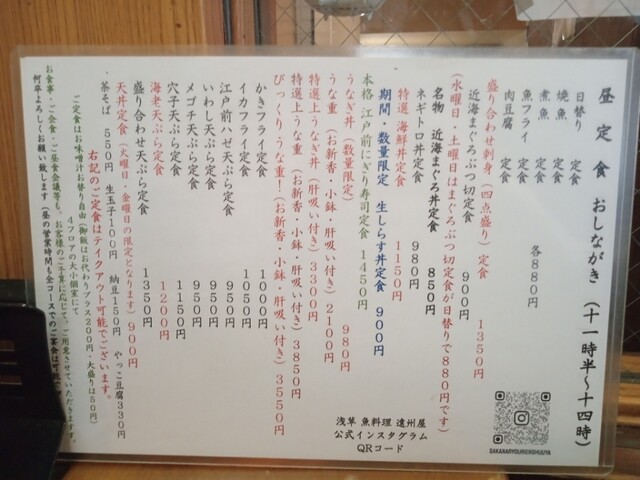 昼定食 おしながき（十一時半～十四時）
日替り 定食
焼魚 定食
煮魚 定食
魚フライ 定食
肉豆腐 定食
各880円
盛り合わせ刺身（四点盛り）定食 1350円
近海まぐろぶつ切定食 900円
（水曜日・土曜日はまぐろぶつ切定食が日替りで880円です）
名物 近海まぐろ丼定食 850円
ネギトロ丼定食 980円
特選 海鮮丼定食 1150円
期間・数量限定 生しらす丼定食 900円
本格 江戸前にぎり寿司定食 1450円
うなぎ丼（数量限定） 980円
うな重（お新香・小鉢・肝吸い付き）2100円
特選上うなぎ丼（肝吸い付き）3300円
特選上うな重（お新香・小鉢・肝吸い付き）3850円
びっくり・うな重！（お新香・小鉢・肝吸い付き）3550円
かきフライ定食 1000円
イカフライ定食 1050円
江戸前ハゼ天ぷら定食 950円
いわし天ぷら定食 950円
メゴチ天ぷら定食 950円
穴子天ぷら定食 1150円
海老天ぷら定食 1200円
盛り合わせ天ぷら定食 1350円
天丼定食（火曜日・金曜日の限定となります）900円
・茶そば 550円 生玉子100円 納豆150円 やっこ豆腐330円
右記のご定食はテイクアウト可能でございます。
ご定食はお味噌汁お替り自由（御飯はお代わりプラス200円・大盛りは50円）
4フロアの大小個室にて
お食事・ご会食・ご昼食会議等も、お客様のご予算に応じて、ご用意させていただきます。
何卒よろしくお願い致します（昼の営業時間も全コースでのご宴会は可能
浅草 魚料理 遠州屋
公式インスタグラム
QRコード
SAKANARYOURIENSHUUYA